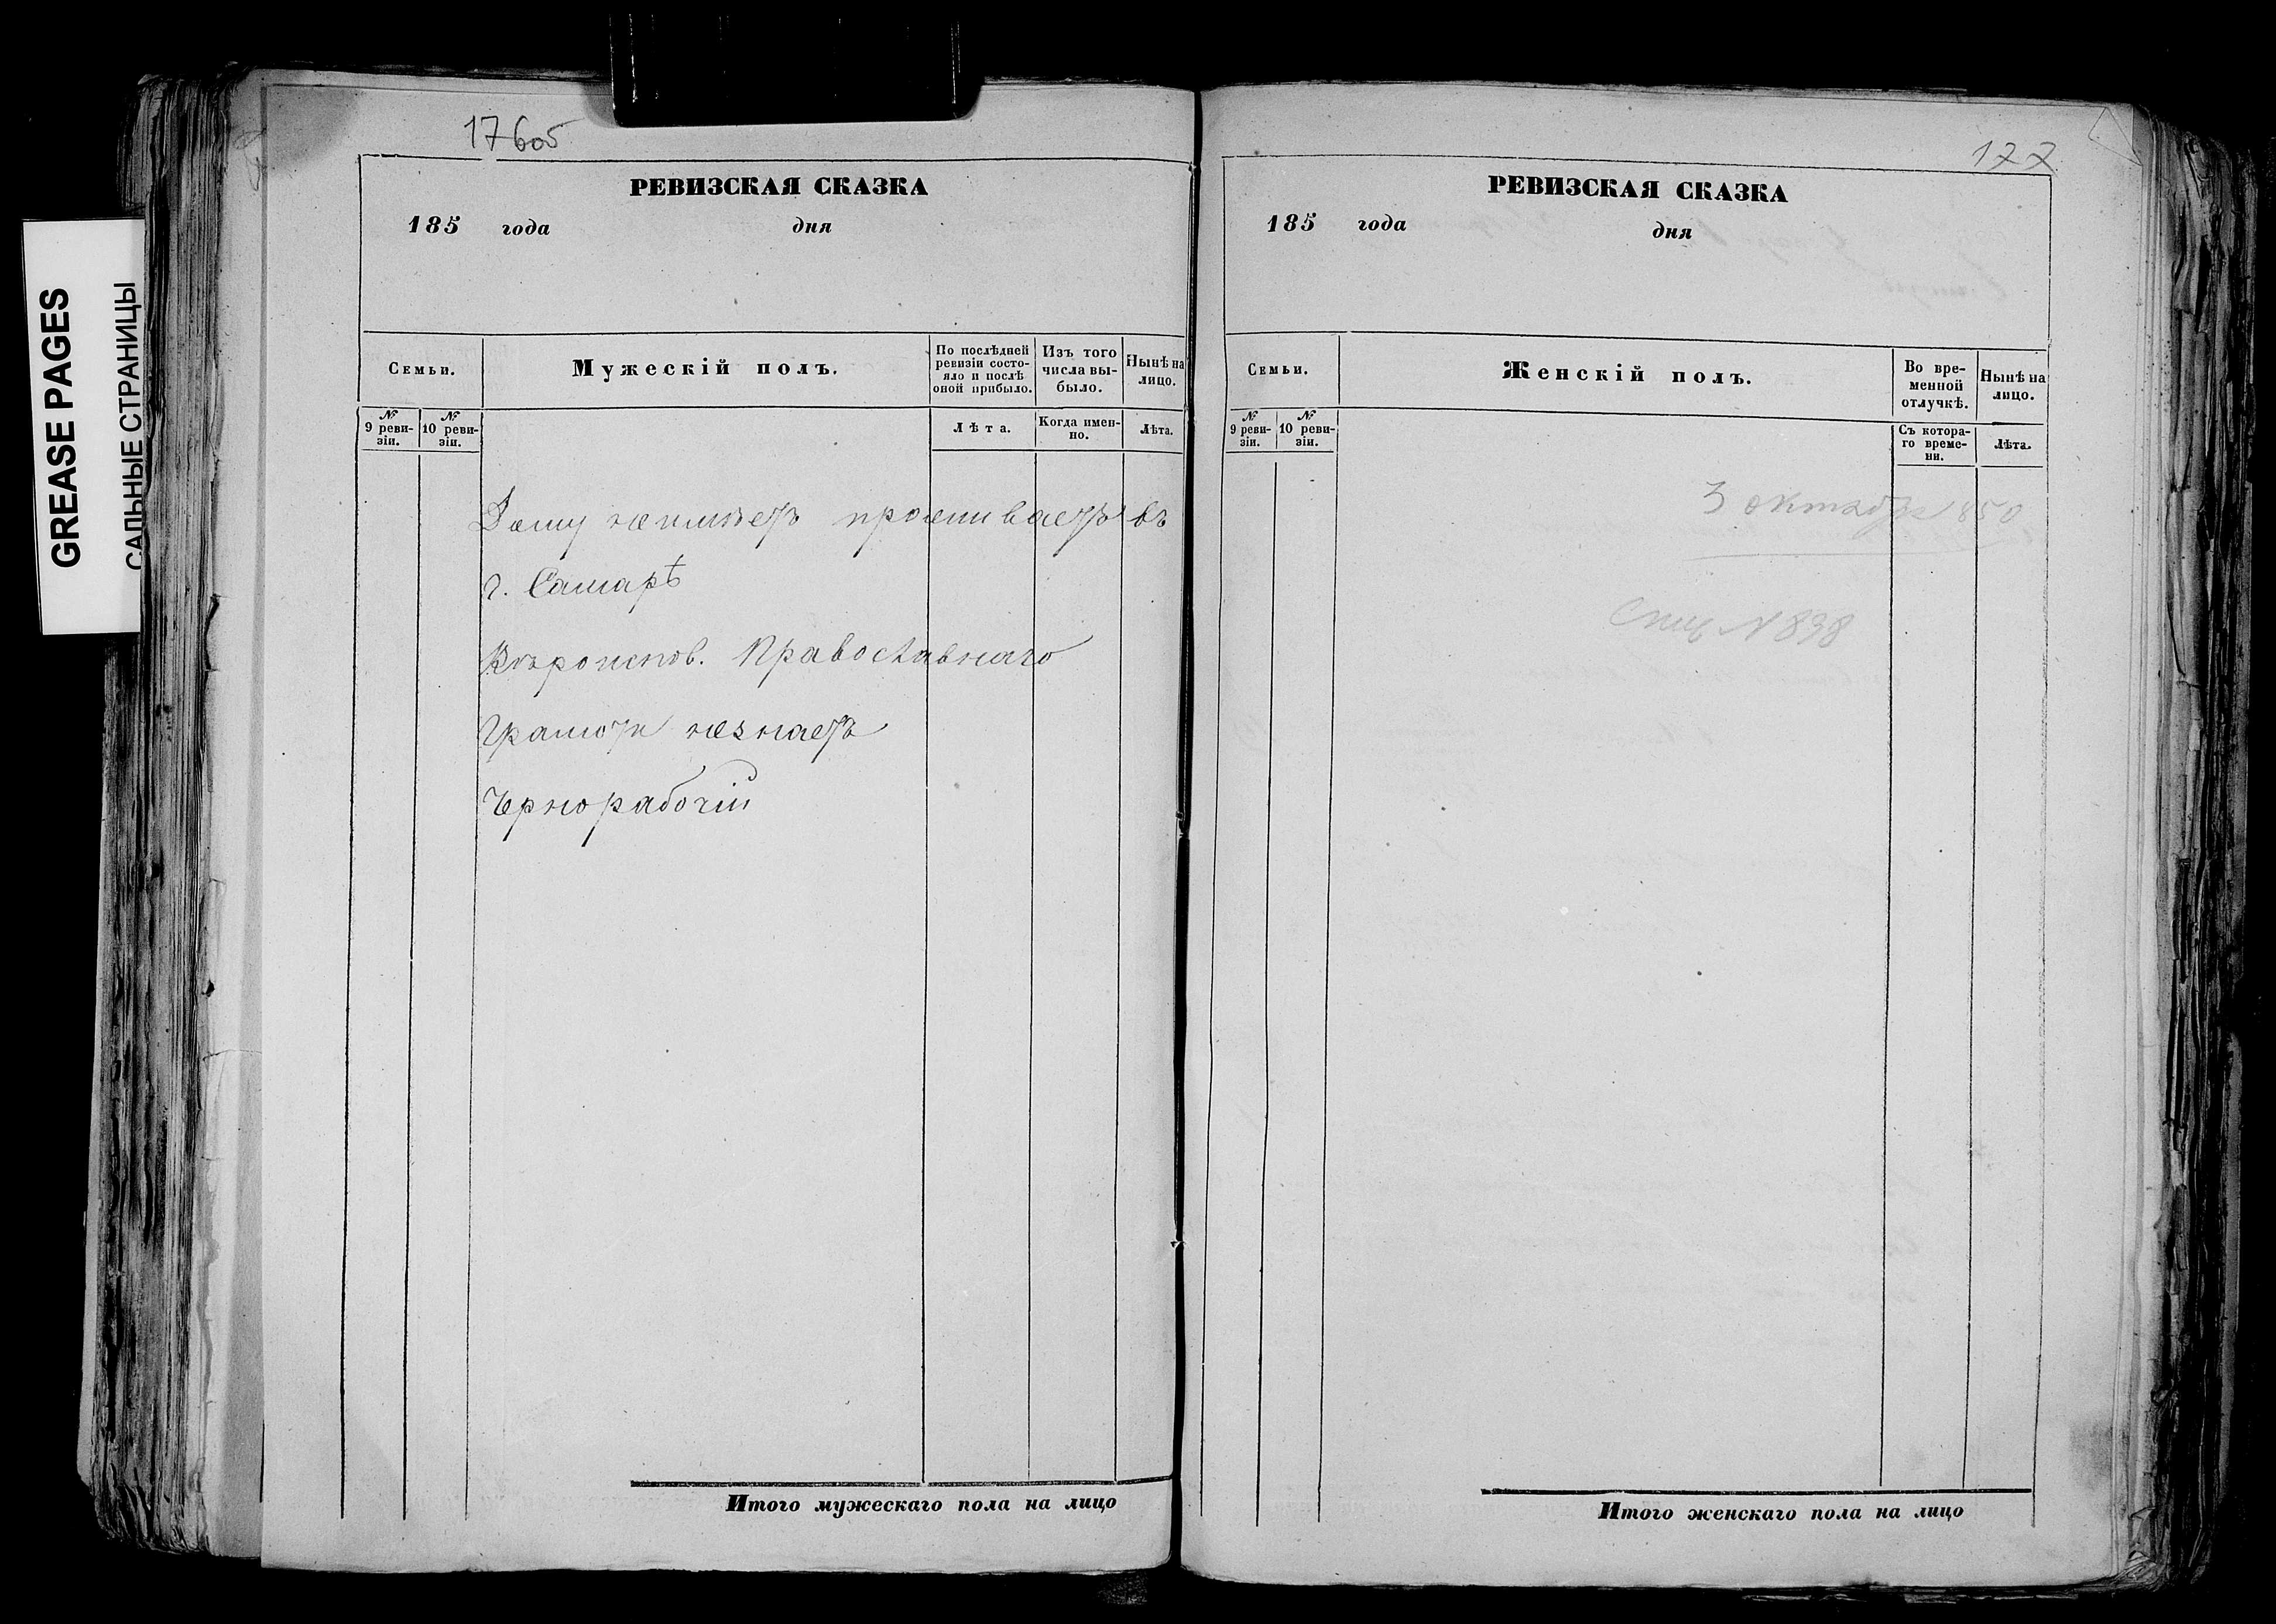 GREASE PAGES
САЛЬНЫЕ СТРАНИЦЫ
176об
РЕВИЗСКАЯ СКАЗКА
185 года дня
Семьи.
Мужескій полъ.
По послѣдней ревизіи состояло и послѣ оной прибыло.
Изъ того числа выбыло.
Нынѣ на лицо.
№ 9 ревизіи.
№ 10 ревизіи.
Лѣта.
Когда именно.
Лѣта.
Дому неимѣетъ проживаетъ въ
г. Самарѣ
Вѣроиспов. Православнаго
Грамоти незнаетъ
Чернорабочій
Итого мужескаго пола на лицо
177
РЕВИЗСКАЯ СКАЗКА
185 года дня
Семьи.
Женскій полъ.
Во временной отлучкѣ.
Нынѣ на лицо.
№ 9 ревизіи.
№ 10 ревизіи.
Съ котораго времени.
Лѣта.
3 октября 850
№ 898
Итого женскаго пола на лицо